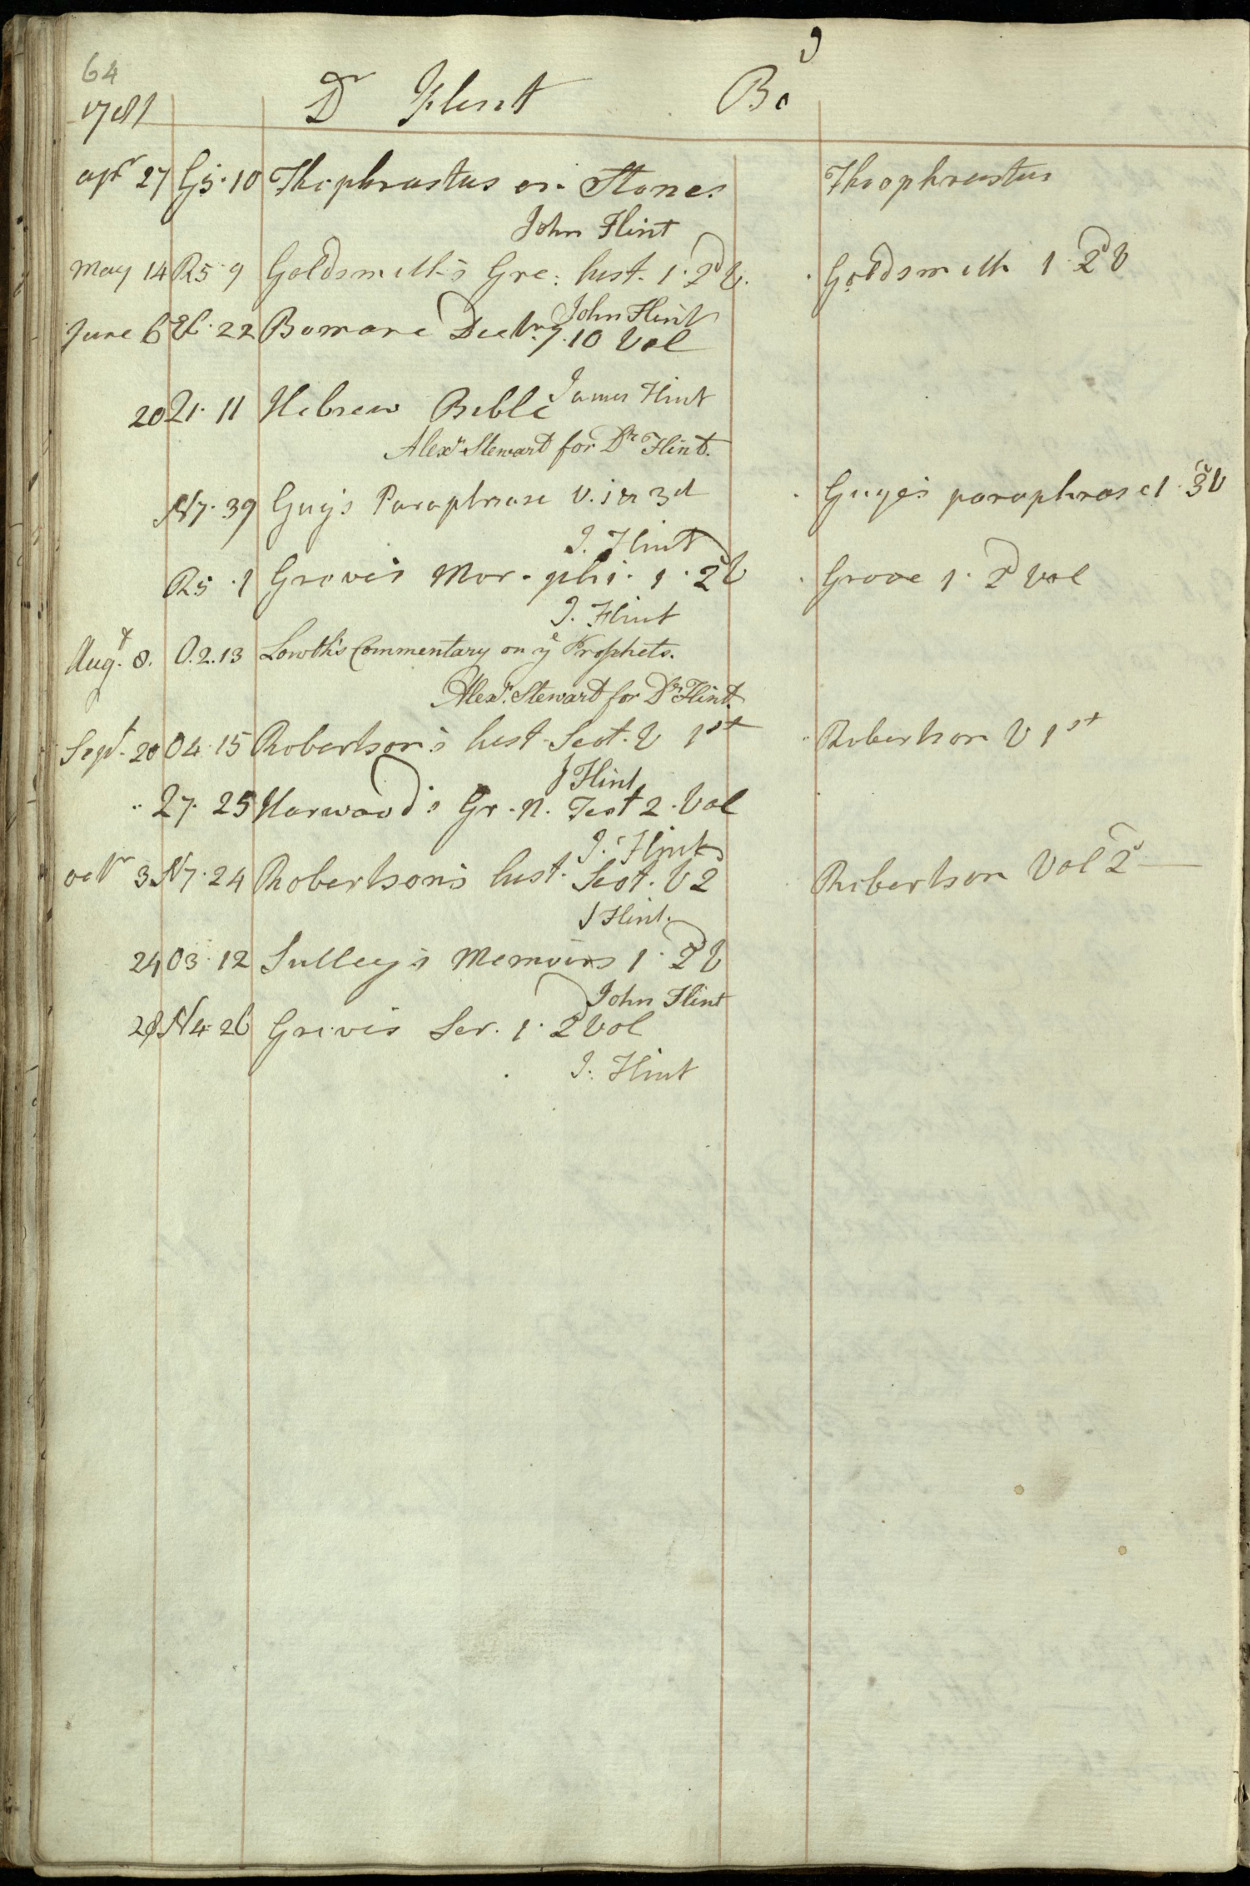 64
1781 Dr Flint Bd
apr 27 G5·10 Thephrastus on Stones Theophrastus
John Flint
May 14 R5·9 Goldsmith's Gre: hist. 1·2d V. Goldsmith 1·2d V
John Flint
June 6 22 Bomare Dictry 7.10 Vol
James Flint
20 11 Hebrew Bible
Alexr Stewart for Dr Flint.
N7·39 Guy's Paraphrase V. 1 & 3d Guye's paraphrase 1·3d V
J. Flint
R5·1 Grove's Mor-phi. 1·2d V Grove 1·2d Vol
J. Flint
Augt. 8. O.2.13 Lowth's Commentary on ye Prophets.
Alexr. Stewart for Dr Flint.
Sept. 20 O4·15 Robertson's hist Scot. V 1st Robertson V 1st
J Flint
27·25 Harwood's Gr. N. Test 2 Vol
J. Flint
octr 3 N7·24 Robertson's hist. Scot. V 2 Robertson Vol 2d
J Flint.
24 O3·12 Sulley's Memoirs 1·2d V
John Flint
28 N4·26 Grove's Ser. 1·2d Vol
J. Flint